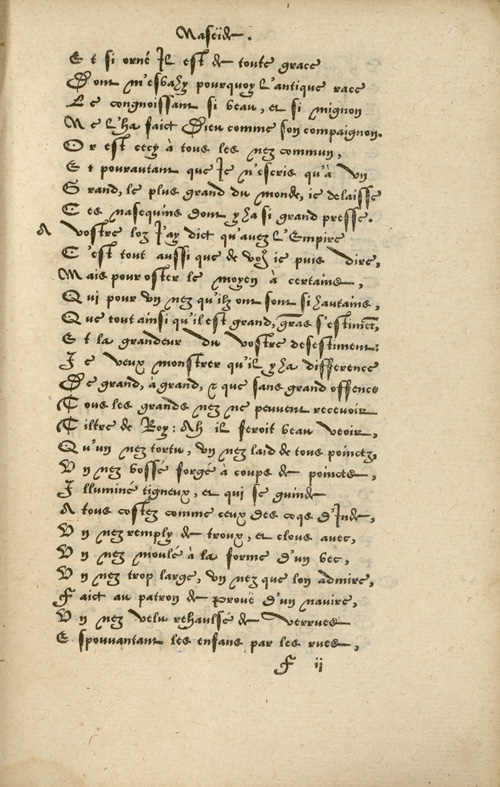 Naseide.
Et si orné Il est de toute grace
Dont m'esbahy pourquoy l'antique race
Le congnoissant si beau, et si mignon
Ne l'ha faict Dieu comme son compaignon.
Or est cecy à tous les nez commun,
Et pourautant que Ie n'escris qu'à vn
Grand, le plus grand du monde, ie delaisse
Ces nasequins dont y ha si grand presse.
A vostre loz I'ay dict qu'auez l'Empire
C'est tout aussi que de voz ie puis dire,
Mais pour oster le moyen à certains,
Qui pour vn nez qu'ilz ont sont si hautains,
Que tout ainsi qu'il est grand, grās s'estiment,
Et la grandeur du vostre desestiment:
Ie veux monstrer qu'il y ha difference
De grand, à grand, & que sans grand offence
Tous les grands nez ne peuvent recevoir
Tiltre de Roy: Ah il feroit beau veoir,
Qu'un nez tortu, vn nez laid de tous pointz,
Vn nez bossé forgé à coups de poinctz,
Illuminé tigneux, et qui se guinde
A tous costez comme ceux des coqs d'Inde,
Vn nez remply de troux, et clous avec,
Vn nez moulé à la forme d'un bec,
Vn nez trop large, vn nez que lon admire,
Faict au patron de prouë d'un navire,
Vn nez velu rehaulsé de verrues
Espouvantant les enfans par les rues,
F ii